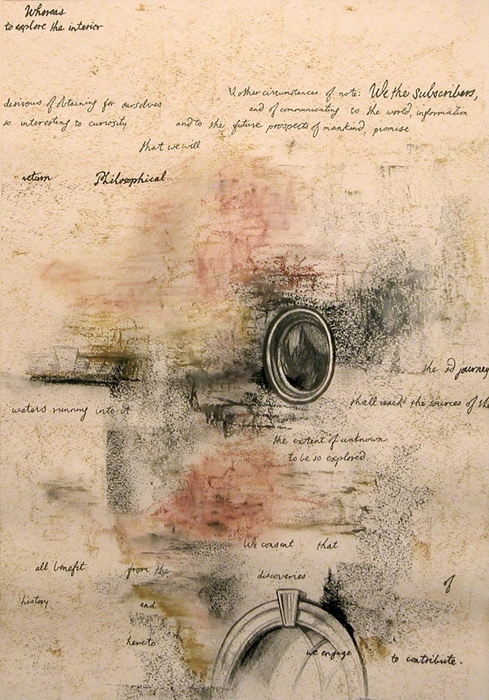 Whereas
to explore the interior
& other circumstances of note: We the Subscribers,
desirous of obtaining for ourselves and of communicating to the world, information
so interesting to curiosity and to the future prospects of mankind, promise
that we will
return Philosophical
the sd journey
waters running into it shall reach the sources of the
the extent of unknown
to be so explored.
We consent that
all benefit from the discoveries of
history and
hereto we engage to contribute.